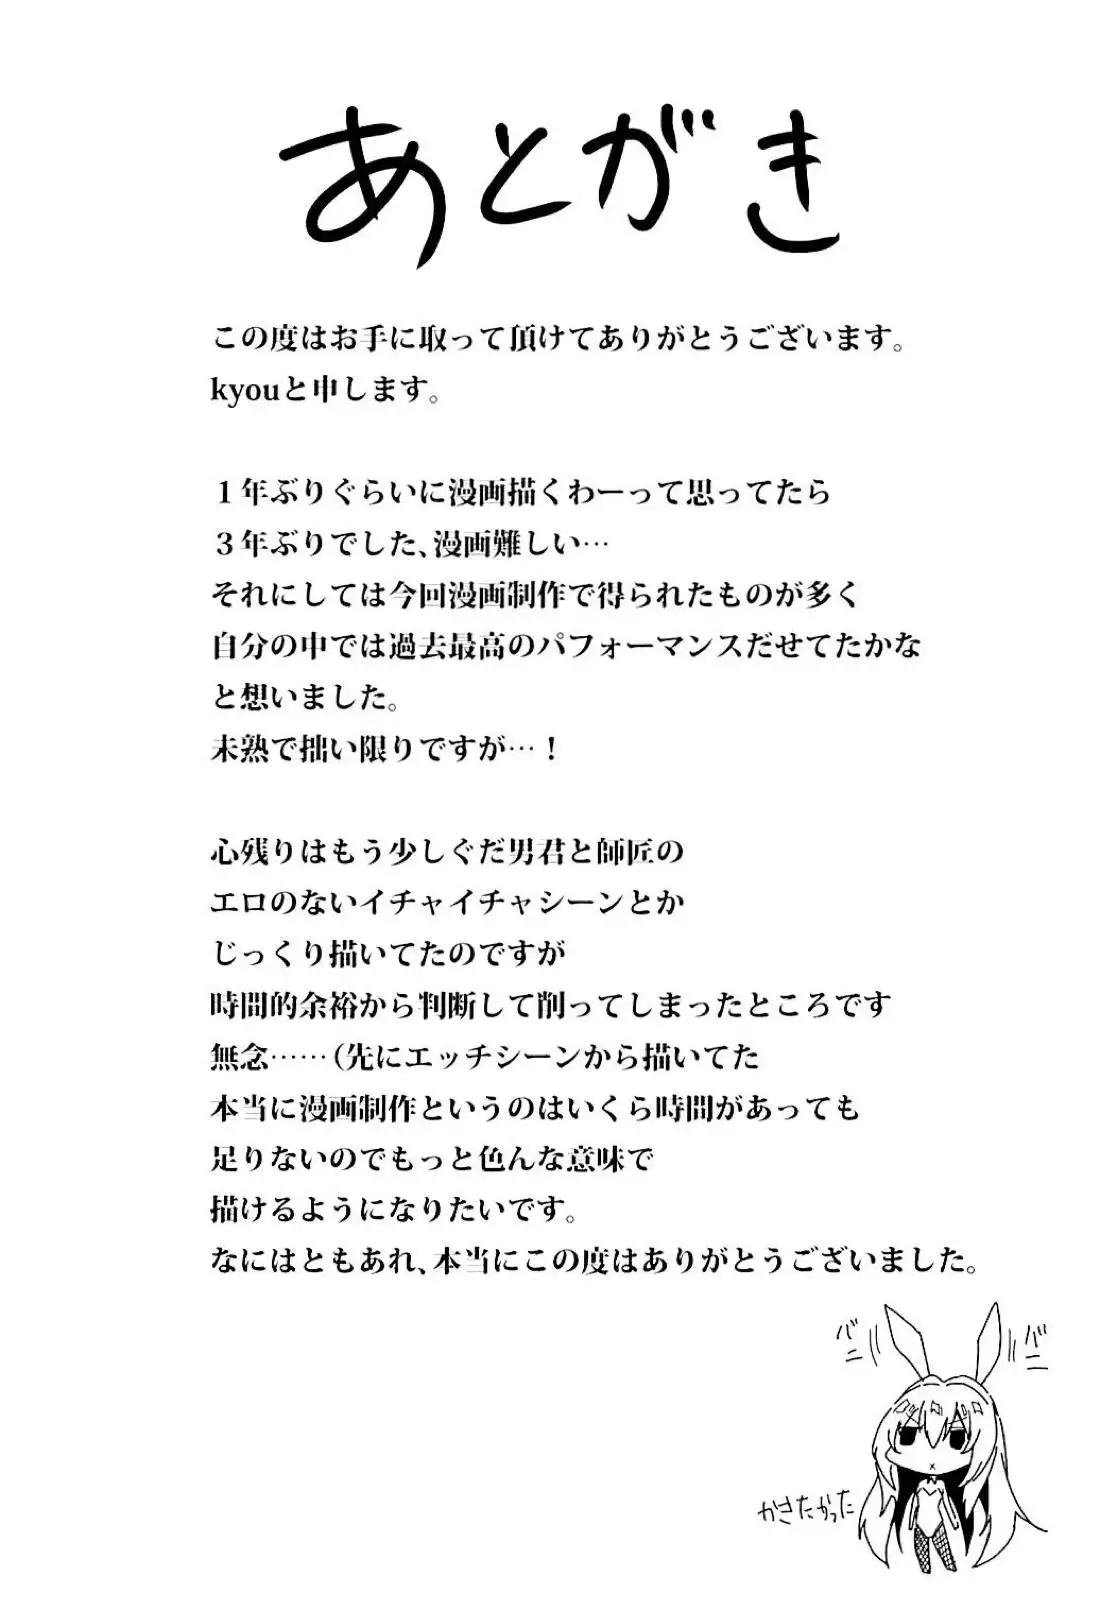 あとがき
この度はお手に取って頂けてありがとうございます。
kyouと申します。
１年ぶりぐらいに漫画描くわーって思ってたら
３年ぶりでした、漫画難しい…
それにしては今回漫画制作で得られたものが多く
自分の中では過去最高のパフォーマンスだせてたかな
と想いました。
未熟で拙い限りですが…！
心残りはもう少しぐだ男君と師匠の
エロのないイチャイチャシーンとか
じっくり描いてたのですが
時間的余裕から判断して削ってしまったところです
無念……（先にエッチシーンから描いてた
本当に漫画制作というのはいくら時間があっても
足りないのでもっと色んな意味で
描けるようになりたいです。
なにはともあれ、本当にこの度はありがとうございました。
バニ
バニ
かきたかった